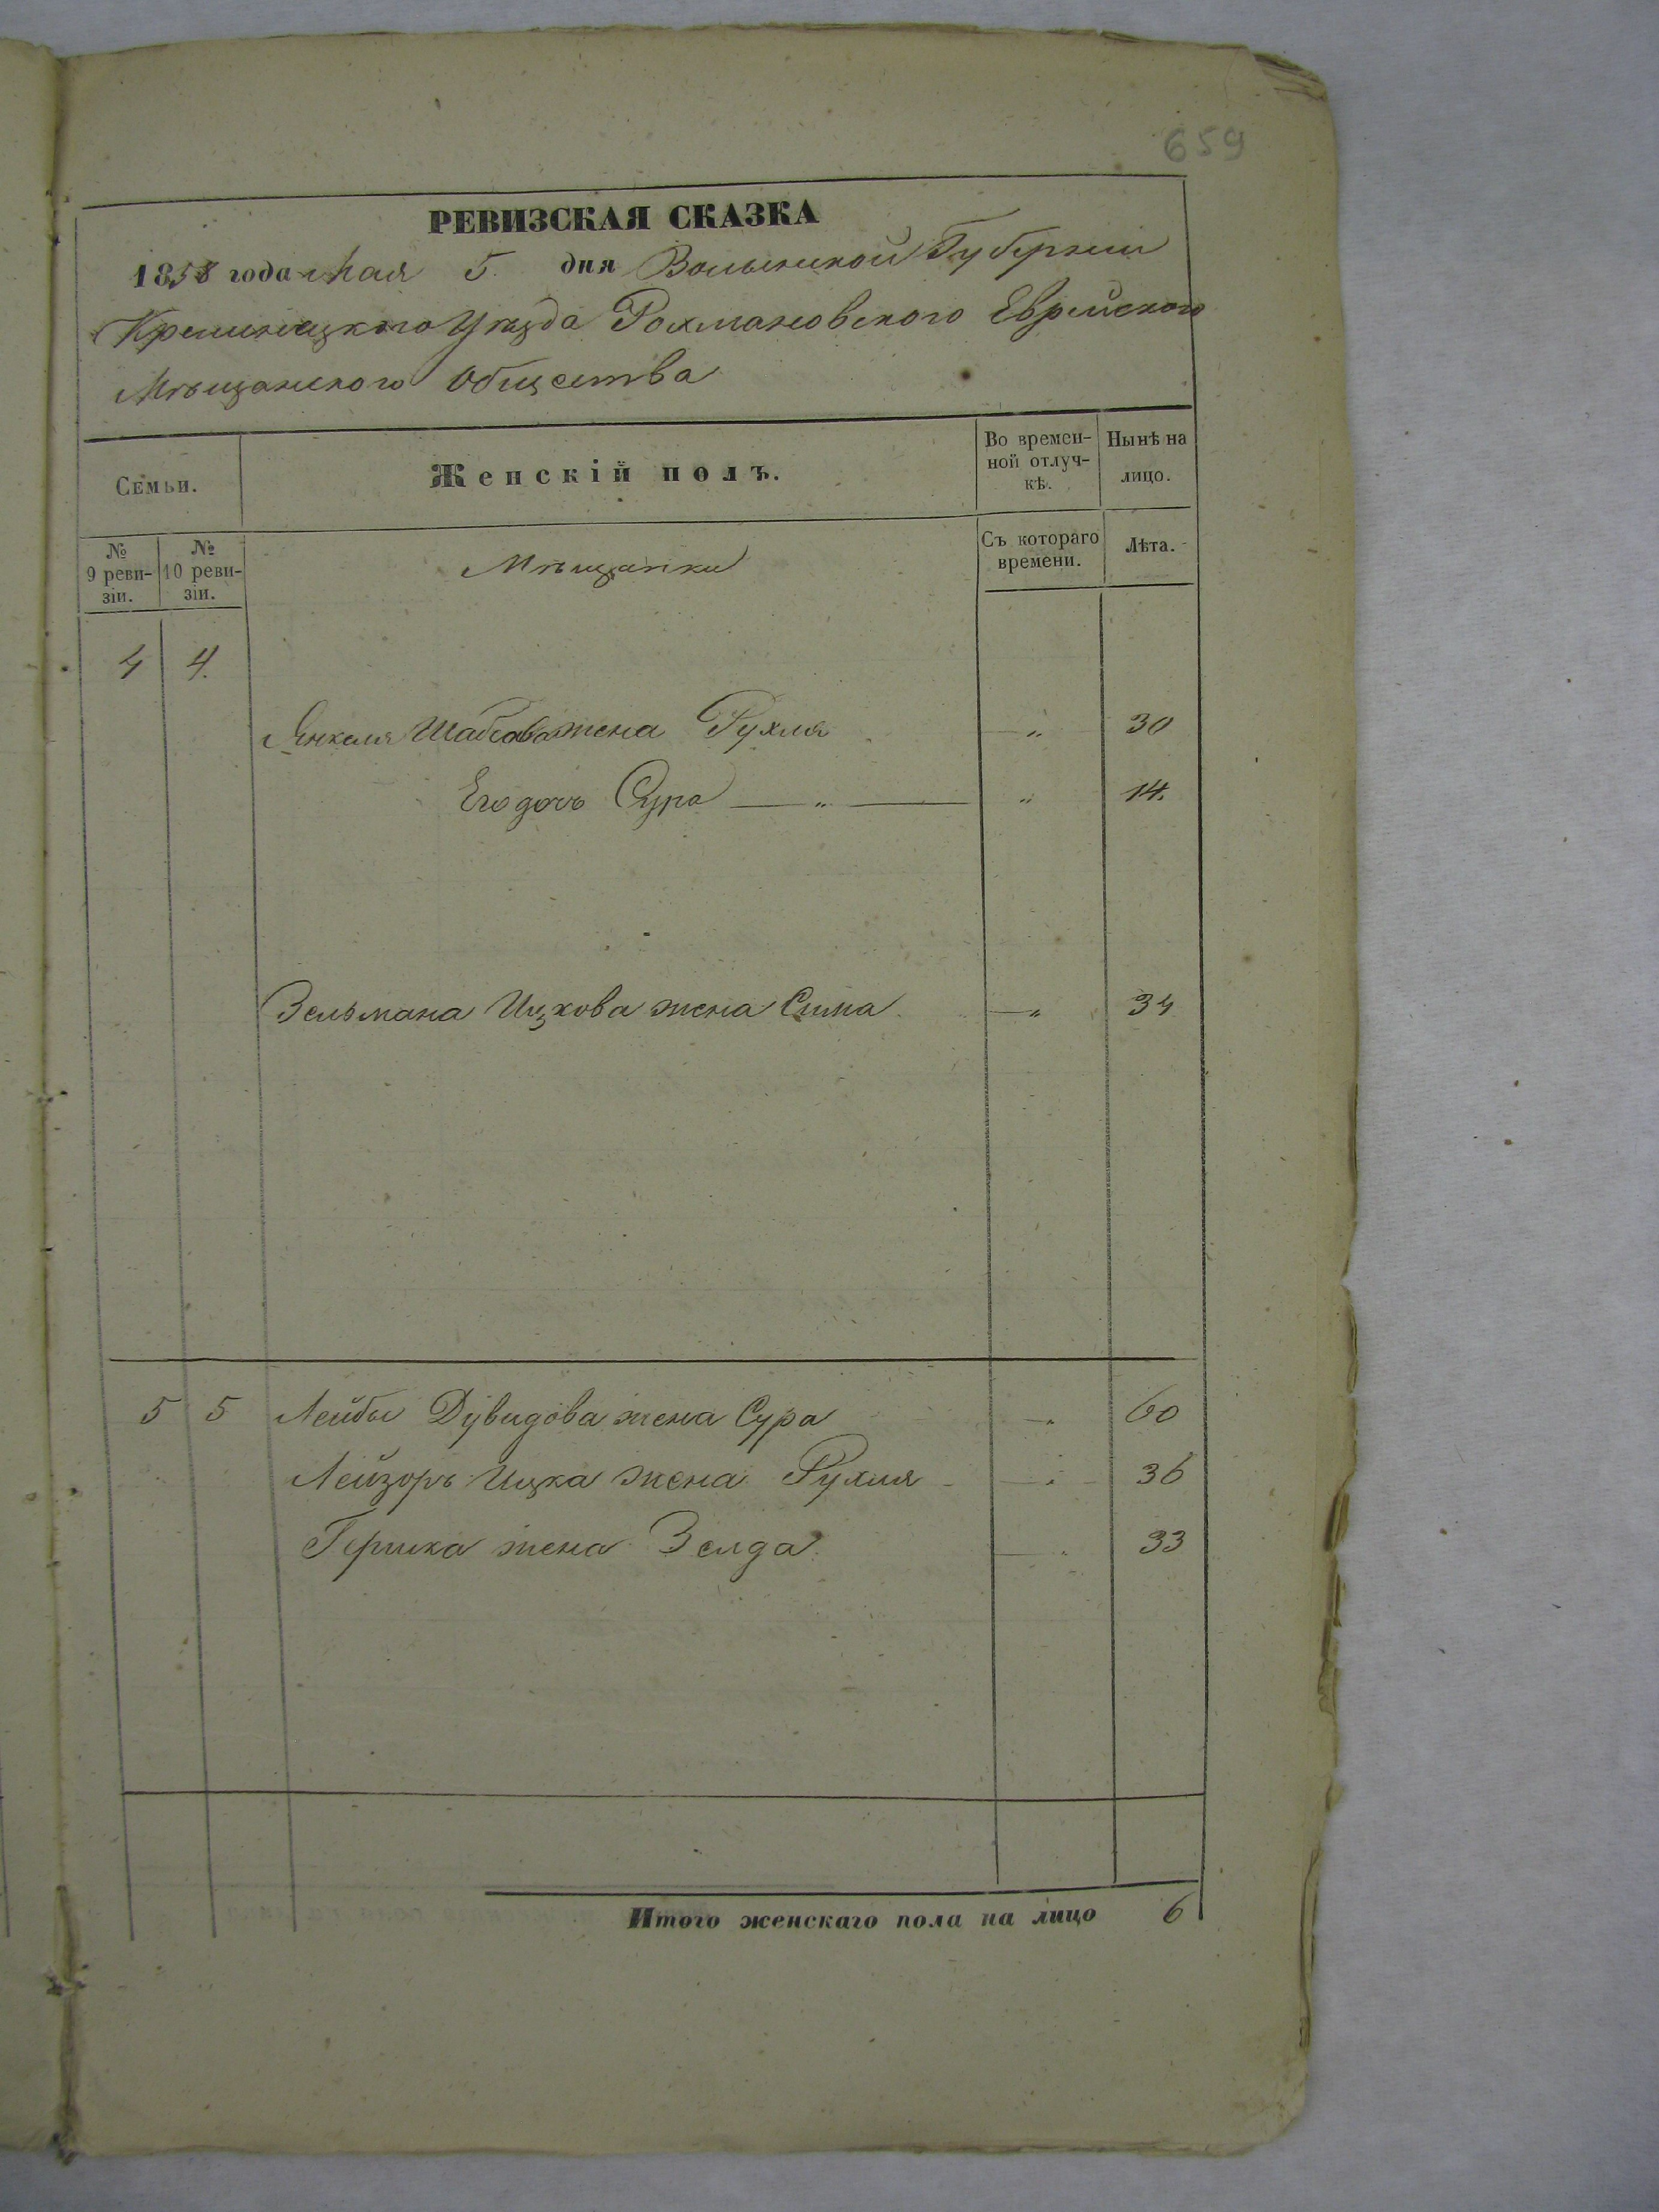 659
РЕВИЗСКАЯ СКАЗКА
1858 года Мая 5. дня Волынской Губерніи
Кременецкого Уѣзда Рохмановского Еврейского
Мѣщанского Общества
Семьи. Женскій полъ. Во времен-ной отлуч-кѣ. Нынѣ на лицо.
№ 9 реви-зіи. № 10 реви-зіи. Мѣщанки Съ котораго времени. Лѣта.
4 4.
Янкеля Шабсова жена Рухля — „ 30
Его дочь Сура — „ — „ 14.
Зельмана Ицкова жена Сима — „ 34
5 5 Лейбы Дувидова жена Сура — „ 60
Лейзоръ Ицка жена Рухля — „ 36
Гершка жена Зелда — „ 33
Итого женскаго пола на лицо 6